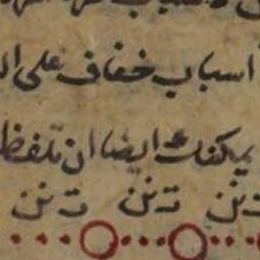 اسباب خفاف على ال
يمكنك ايضا ان تلفظ
تنن تنن تنن